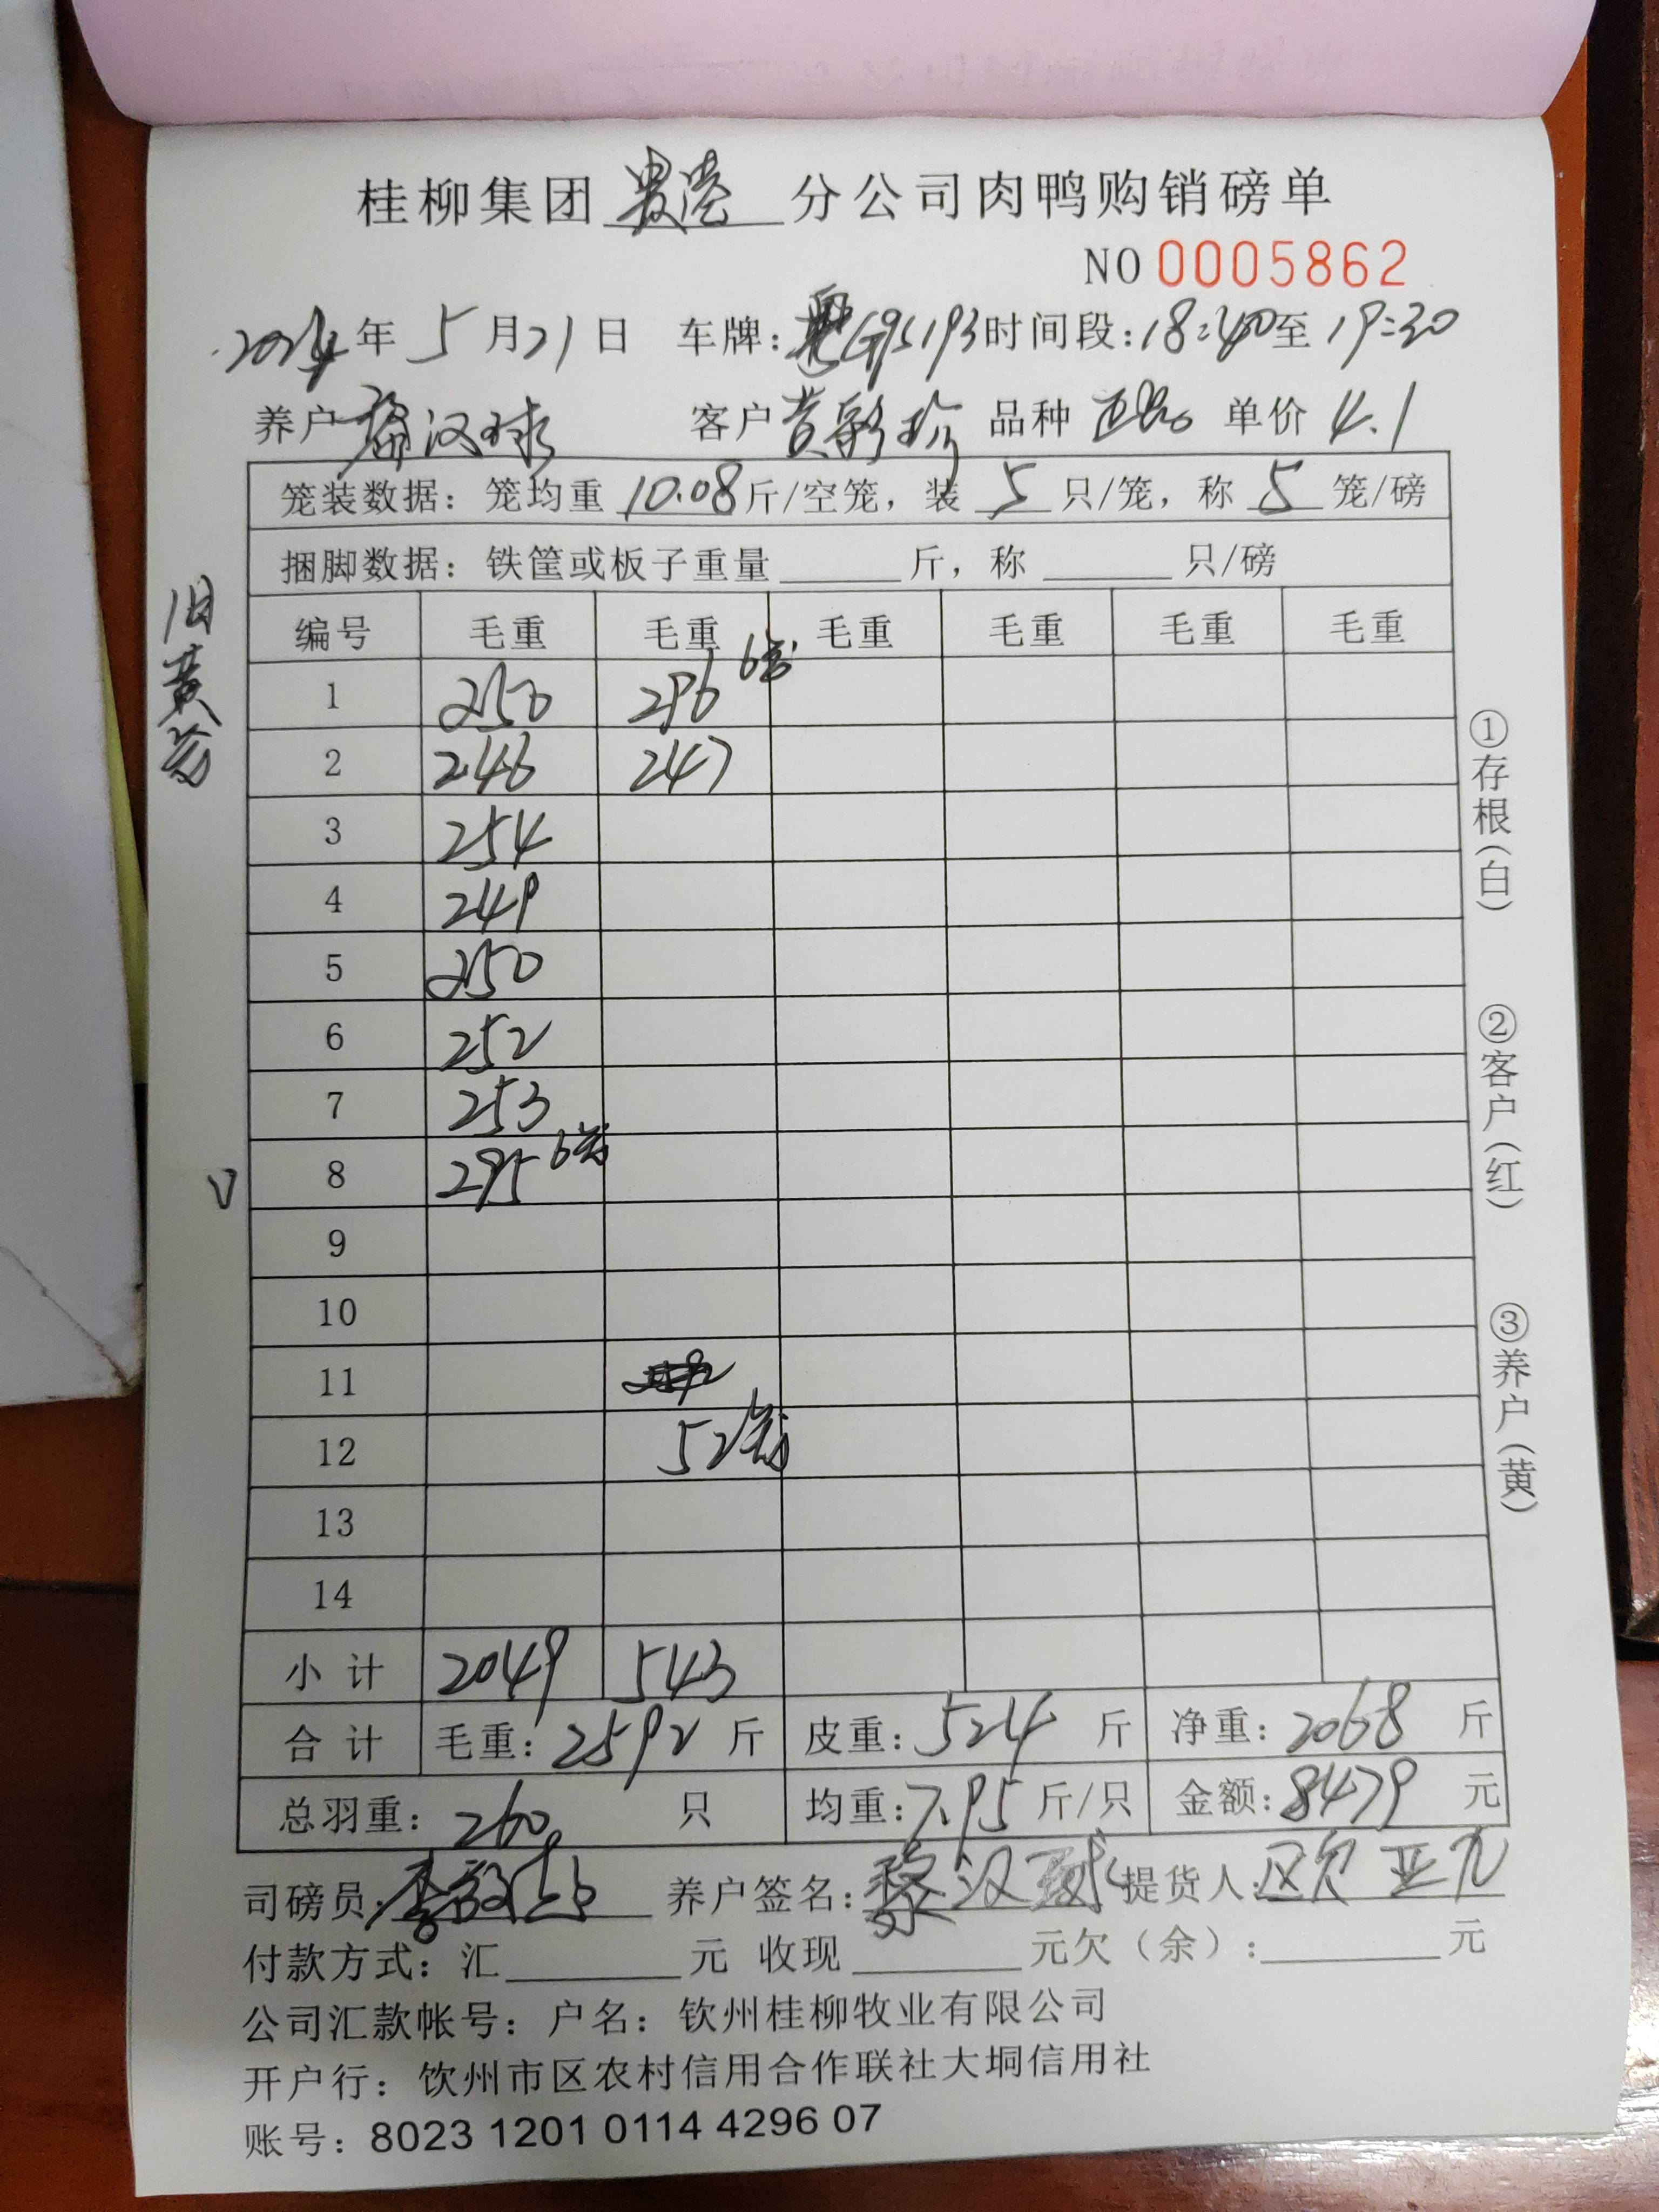 桂柳集团贵港分公司肉鸭购销磅单
NO 0005862
2024年5月21日 车牌: G9S193 时间段:18:40至19:30
养户 汉球 客户黄彩珍 品种 单价 4.1
笼装数据: 笼均重 10.08 斤/空笼, 装 5 只/笼, 称 5 笼/磅
捆脚数据: 铁筐或板子重量 斤, 称 只/磅
旧黄笼
编号 毛重 毛重 毛重 毛重 毛重 毛重
1 250 296 6笼
2 246 247
3 254
4 249
5 250
6 252
7 253
8 295 6笼
9
10
11
12 52笼
13
14
小计 2049 543
合计 毛重: 2592 斤 皮重: 524 斤 净重: 2068 斤
总羽重: 260 只 均重: 7.95 斤/只 金额: 8479 元
司磅员: 李 养户签名: 黎汉球 提货人: 欧亚九
付款方式: 汇 元 收现 元欠(余): 元
公司汇款帐号: 户名: 钦州桂柳牧业有限公司
开户行: 钦州市区农村信用合作联社大垌信用社
账号: 8023 1201 0114 4296 07
①存根(白) ②客户(红) ③养户(黄)